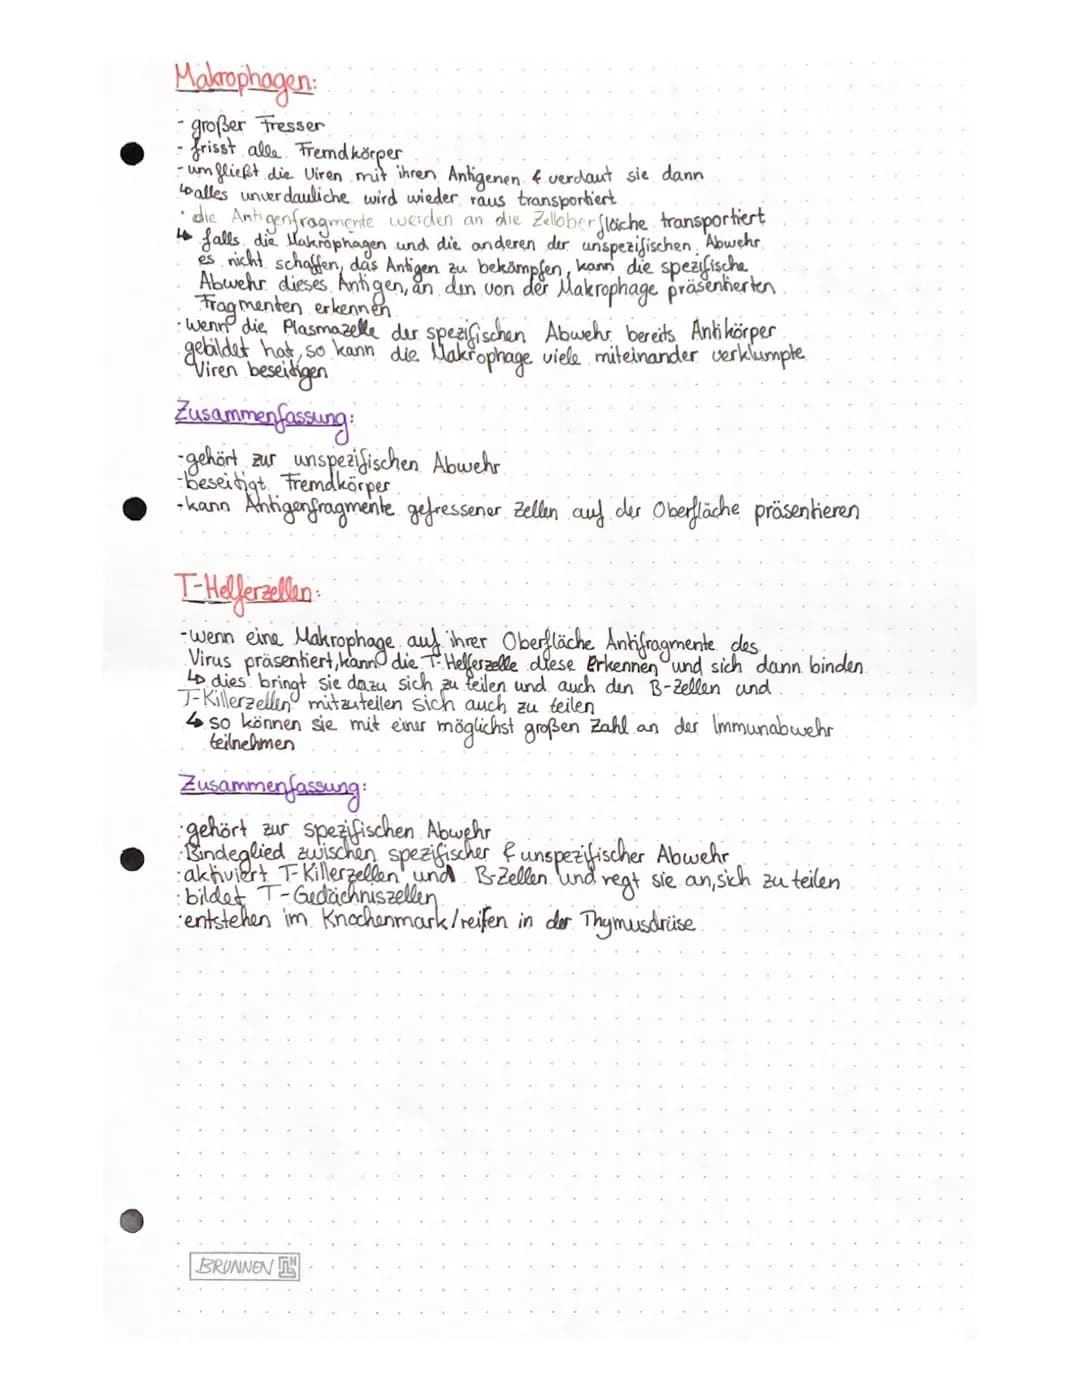 Makrophagen:
- großer Fresser
- frisst alle Fremdkörper
- umfließt die Viren mit ihren Antigenen & verdaut sie dann
↳ alles unverdauliche wird wieder raus transportiert
· die Antigenfragmente werden an die Zelloberfläche transportiert
↳ falls die Makrophagen und die anderen der unspezifischen Abwehr
es nicht schaffen, das Antigen zu bekämpfen, kann die spezifische
Abwehr dieses Antigen, an den von der Makrophage präsentierten
Fragmenten erkennen
· wenn die Plasmazelle der spezifischen Abwehr bereits Antikörper
gebildet hat, so kann die Makrophage viele miteinander verklumpte
Viren beseitigen
Zusammenfassung:
- gehört zur unspezifischen Abwehr
- beseitigt Fremdkörper
- kann Antigenfragmente gefressener Zellen auf der Oberfläche präsentieren
T-Helferzellen:
- wenn eine Makrophage auf ihrer Oberfläche Antifragmente des
Virus präsentiert, kann die T-Helferzelle diese Erkennen und sich dann binden
↳ dies bringt sie dazu sich zu teilen und auch den B-Zellen und
T-Killerzellen mitzuteilen sich auch zu teilen
↳ so können sie mit einer möglichst großen Zahl an der Immunabwehr
teilnehmen
Zusammenfassung:
· gehört zur spezifischen Abwehr
· Bindeglied zwischen spezifischer & unspezifischer Abwehr
· aktiviert T-Killerzellen und B-Zellen und regt sie an, sich zu teilen
· bildet T-Gedächniszellen
· entstehen im Knochenmark/reifen in der Thymusdrüse
BRUNNEN